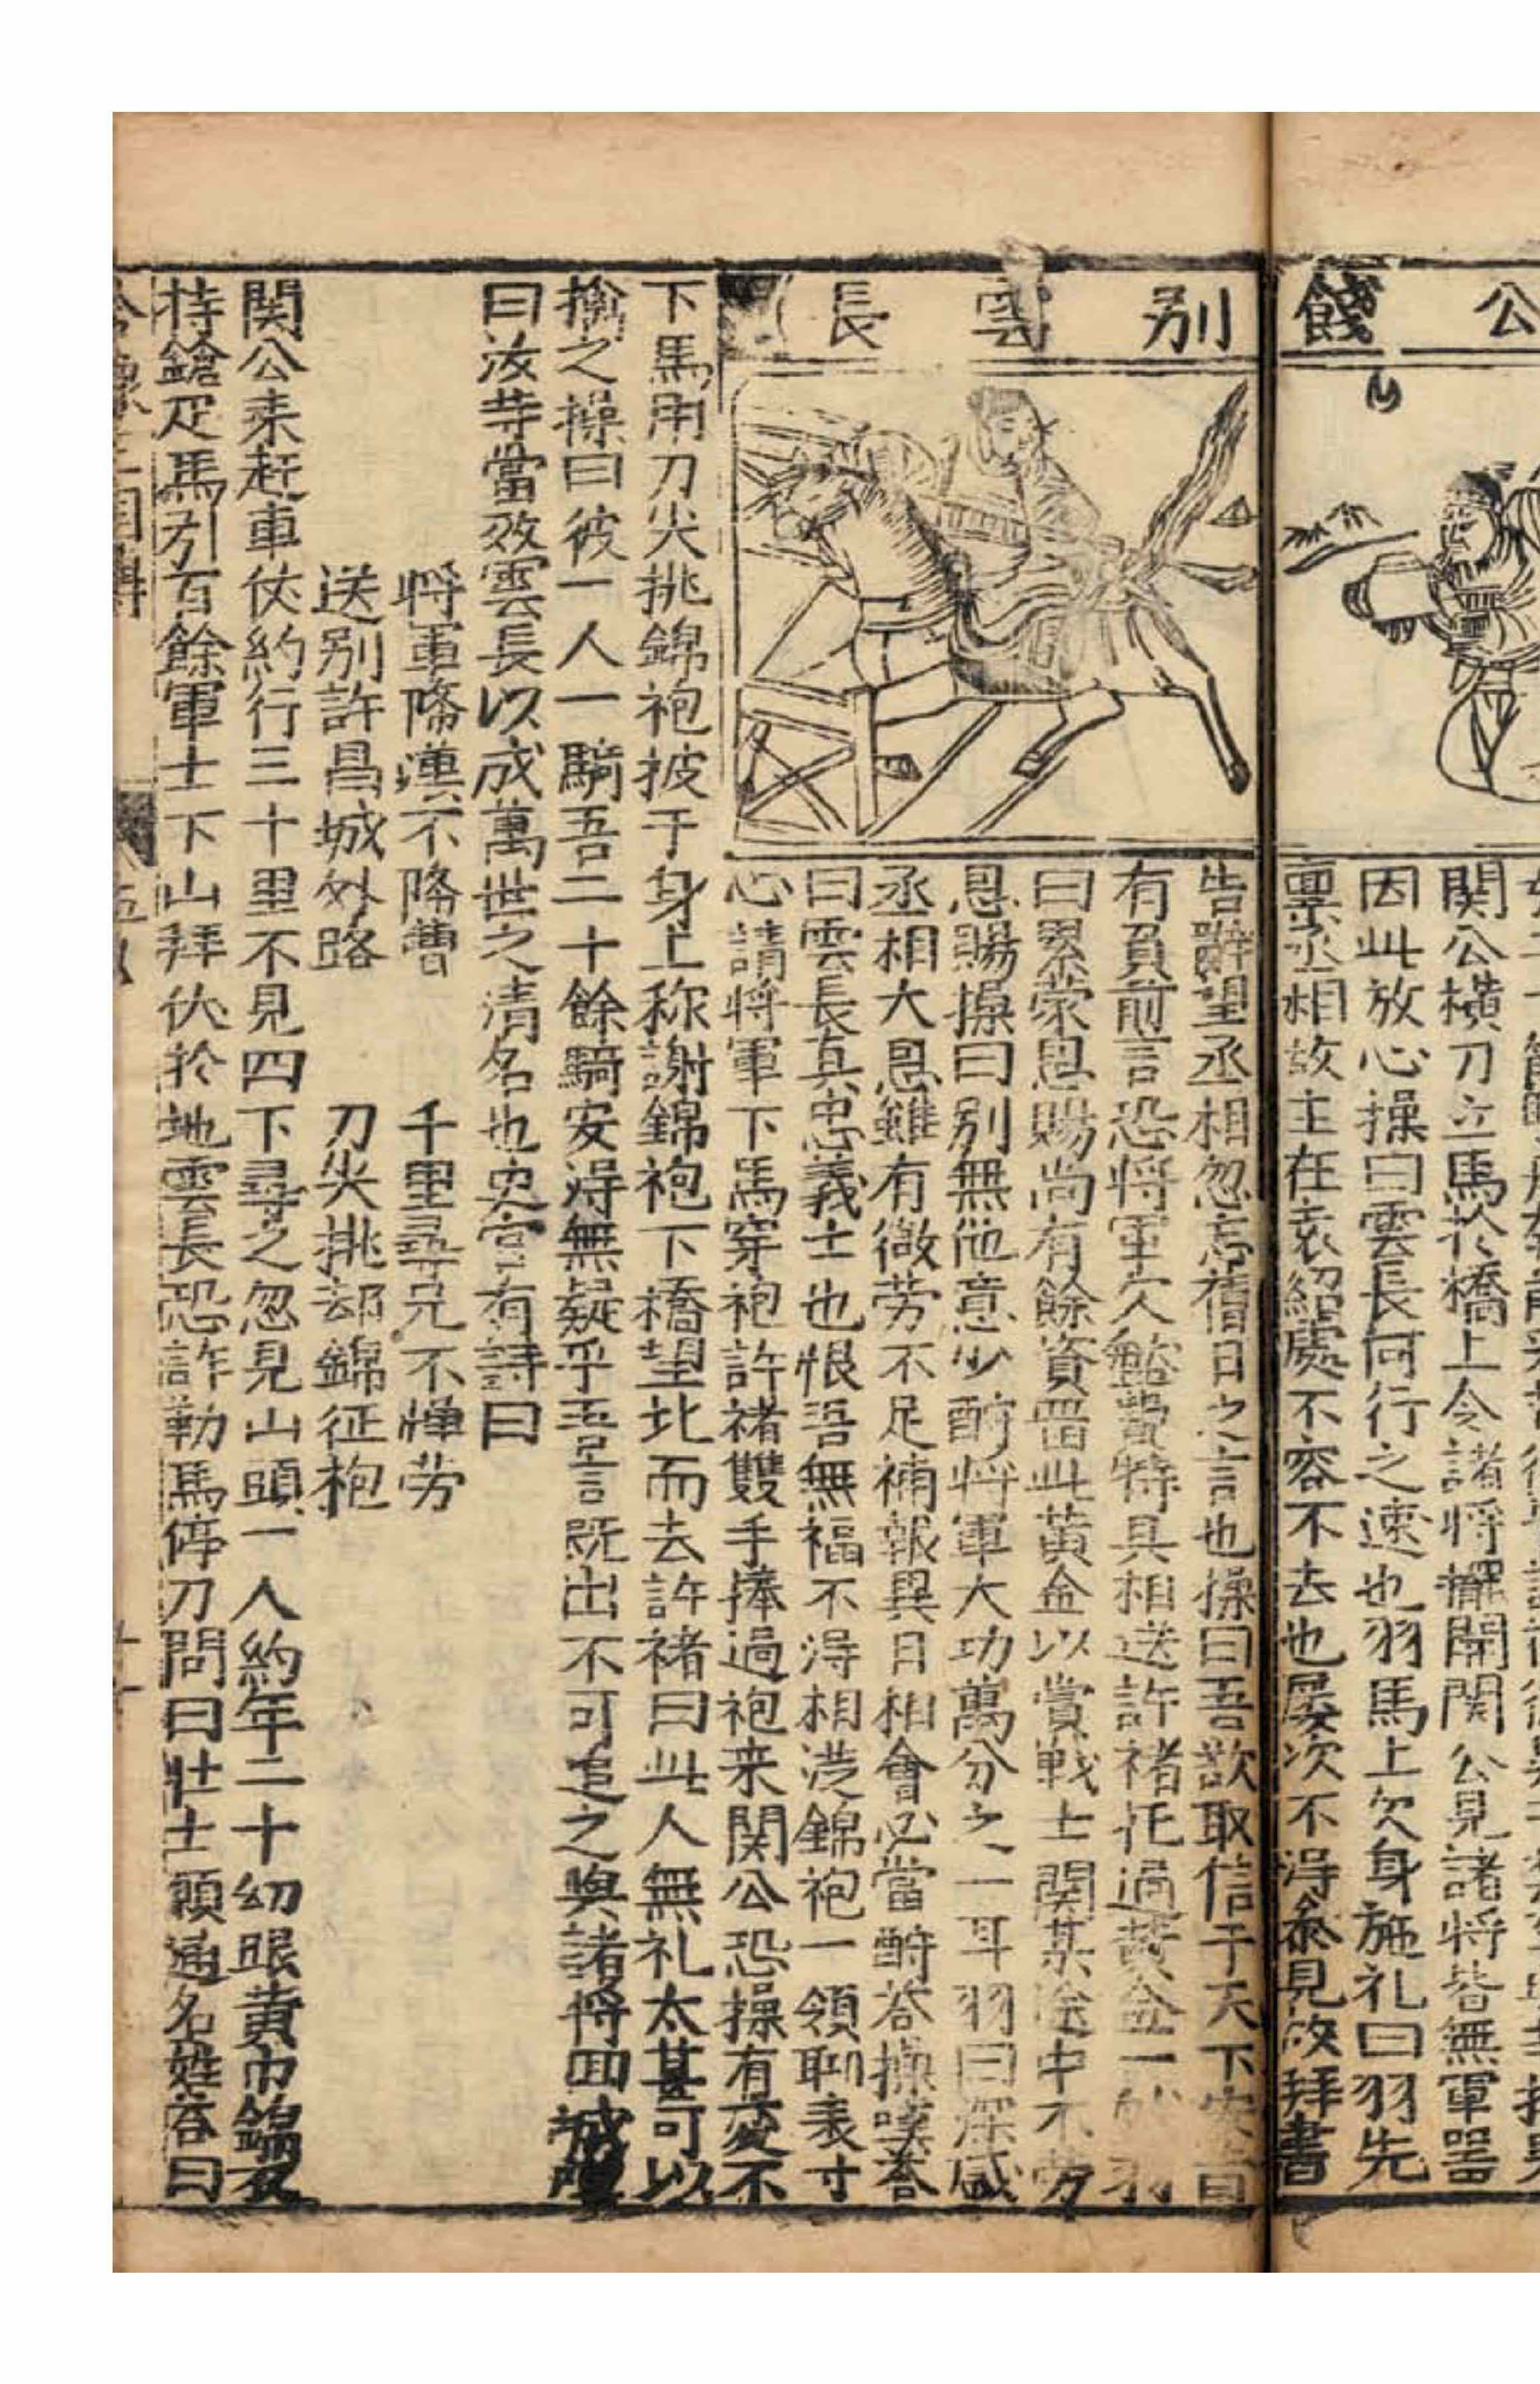 公
餞
別
雲
長
関公橫刀立馬於橋上令諸将擺開関公見諸将皆無軍器
因此放心操曰雲長何行之速也羽馬上欠身施礼曰羽先
禀丞相故主在袁紹處不容不去也屡次不淂叅見故拜書
告辭望丞相忽忘舊日之言也操曰吾欲取信于天下安肯
有負前言恐将軍欠盤費特具相送許褚托過黄金一 羽
曰累蒙恩賜尚有餘資畱此黄金以賞戦士関某途中不劳
恩賜操曰别無他意少酧将軍大功萬分之一耳羽曰深感
丞相大恩雖有微劳不足補報異日相會必當酧荅操嘆荅
曰雲長真忠義士也恨吾無福不淂相从錦袍一領聊表寸
心請将軍下馬穿袍許褚雙手捧過袍来関公恐操有変不
下馬用刀尖挑錦袍披于身上称謝錦袍下橋望北而去許褚曰此人無礼太甚可以
擒之操曰彼一人一騎吾二十餘騎安淂無疑乎吾言既出不可追之與諸将囬城
曰汝等當效雲長以成萬世之清名也史官有詩曰
将軍降漢不降曹 千里尋兄不憚劳
送别許昌城外路 刀尖挑却錦征袍
関公来赶車仗約行三十里不見四下尋之忽見山頭一人約年二十幼眼黄巾錦衣
持鎗疋馬引百餘軍士下山拜伏於地雲長恐詐勒馬停刀問曰壮士願通名姓荅曰